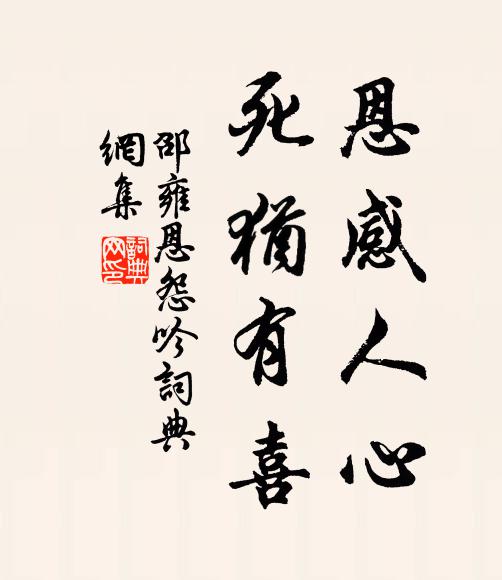 恩感人心
死猶有喜
邵雍恩怨吟詞典
網集
詞典
网印